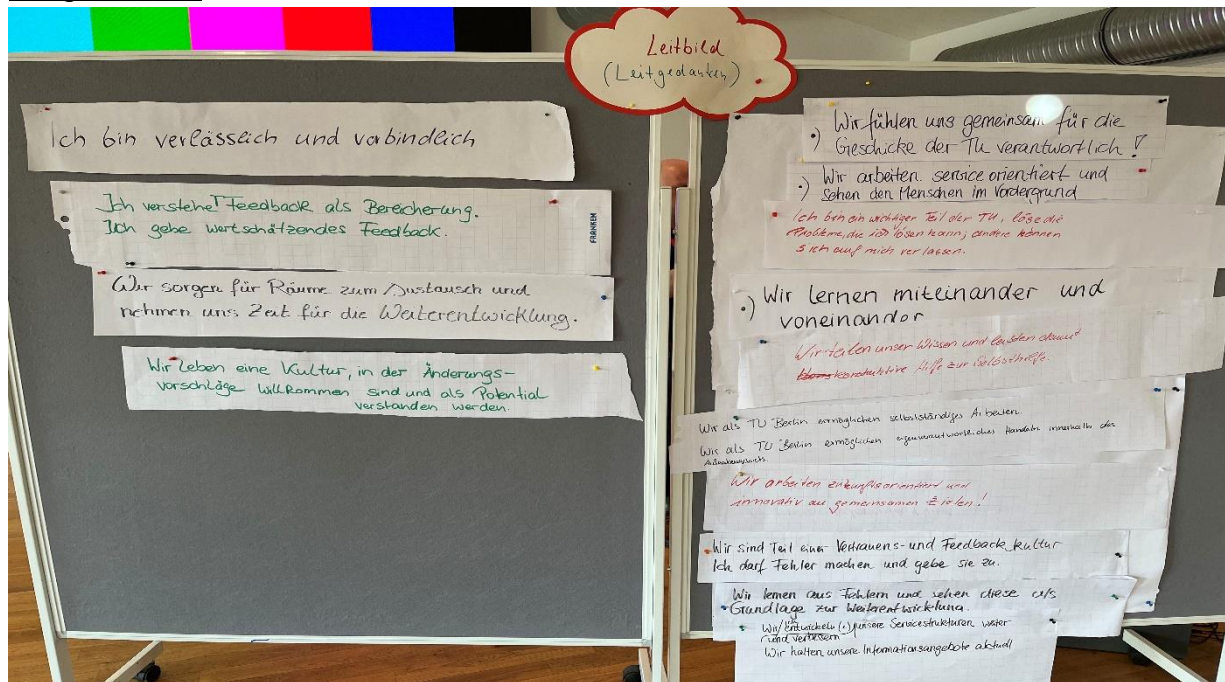 Leitbild
(Leitgedanken)
Ich bin verlässlich und verbindlich
Ich verstehe Feedback als Bereicherung.
Ich gebe wertschätzendes Feedback.
FRANKEN
Wir sorgen für Räume zum Austausch und
nehmen uns Zeit für die Weiterentwicklung.
Wir leben eine Kultur, in der Änderungs-
vorschläge willkommen sind und als Potential
verstanden werden.
•) Wir fühlen uns gemeinsam für die
Geschicke der TU verantwortlich!
•) Wir arbeiten service orientiert und
sehen den Menschen im Vordergrund
Ich bin ein wichtiger Teil der TU, löse die
Probleme, die ich lösen kann; andere können
sich auf mich verlassen.
•) Wir lernen miteinander und
voneinander
Wir teilen unser Wissen und leisten damit
konstruktive Hilfe zur Selbsthilfe.
Wir als TU Berlin ermöglichen selbstständiges Arbeiten.
Wir als TU Berlin ermöglichen eigenverantwortliches Handeln innerhalb des
Wir arbeiten zukunftsorientiert und
innovativ an gemeinsamen Zielen!
Wir sind Teil einer Vertrauens- und Feedback kultur
Ich darf Fehler machen und gebe sie zu.
Wir lernen aus Fehlern und sehen diese als
Grundlage zur Weiterentwicklung.
Wir entwickeln (•) unsere Servicestrukturen weiter
und verbessern
Wir halten unsere Informationsangebote aktuell